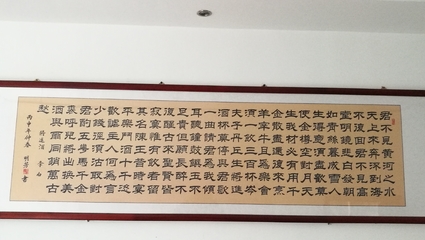 君不見黃河之水
天上來奔流到海
不復回君不見高
堂明鏡悲白髮朝
如青絲暮成雪人
生得意須盡歡莫
使金樽空對月天
生我材必有用千
金散盡還復來烹
羊宰牛且為樂會
須一飲三百杯岑
夫子丹丘生將進
酒杯莫停與君歌
一曲君為我傾
耳聽鐘鼓玉不
足貴但願長醉不
復醒古來聖賢皆
寂寞惟有飲者留
其名陳王昔時宴
平樂斗酒十千恣
歡謔主人何為言
少錢徑須沽取對
君酌五花馬千金
裘呼兒將出換美
酒與爾同銷萬古
愁
將進酒 李白
丙申年仲春 書